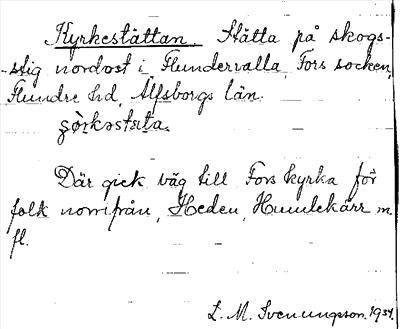 Kyrkestättan. Stätta på skogs-
-stig nordost i Flundervalla, Fors socken,
Flundre hd, Älfsborgs län.
Där gick väg till Fors kyrka för
folk norrifrån, Heden, Humlekärr m.
fl.
L. M. Svenungsson. 1934.